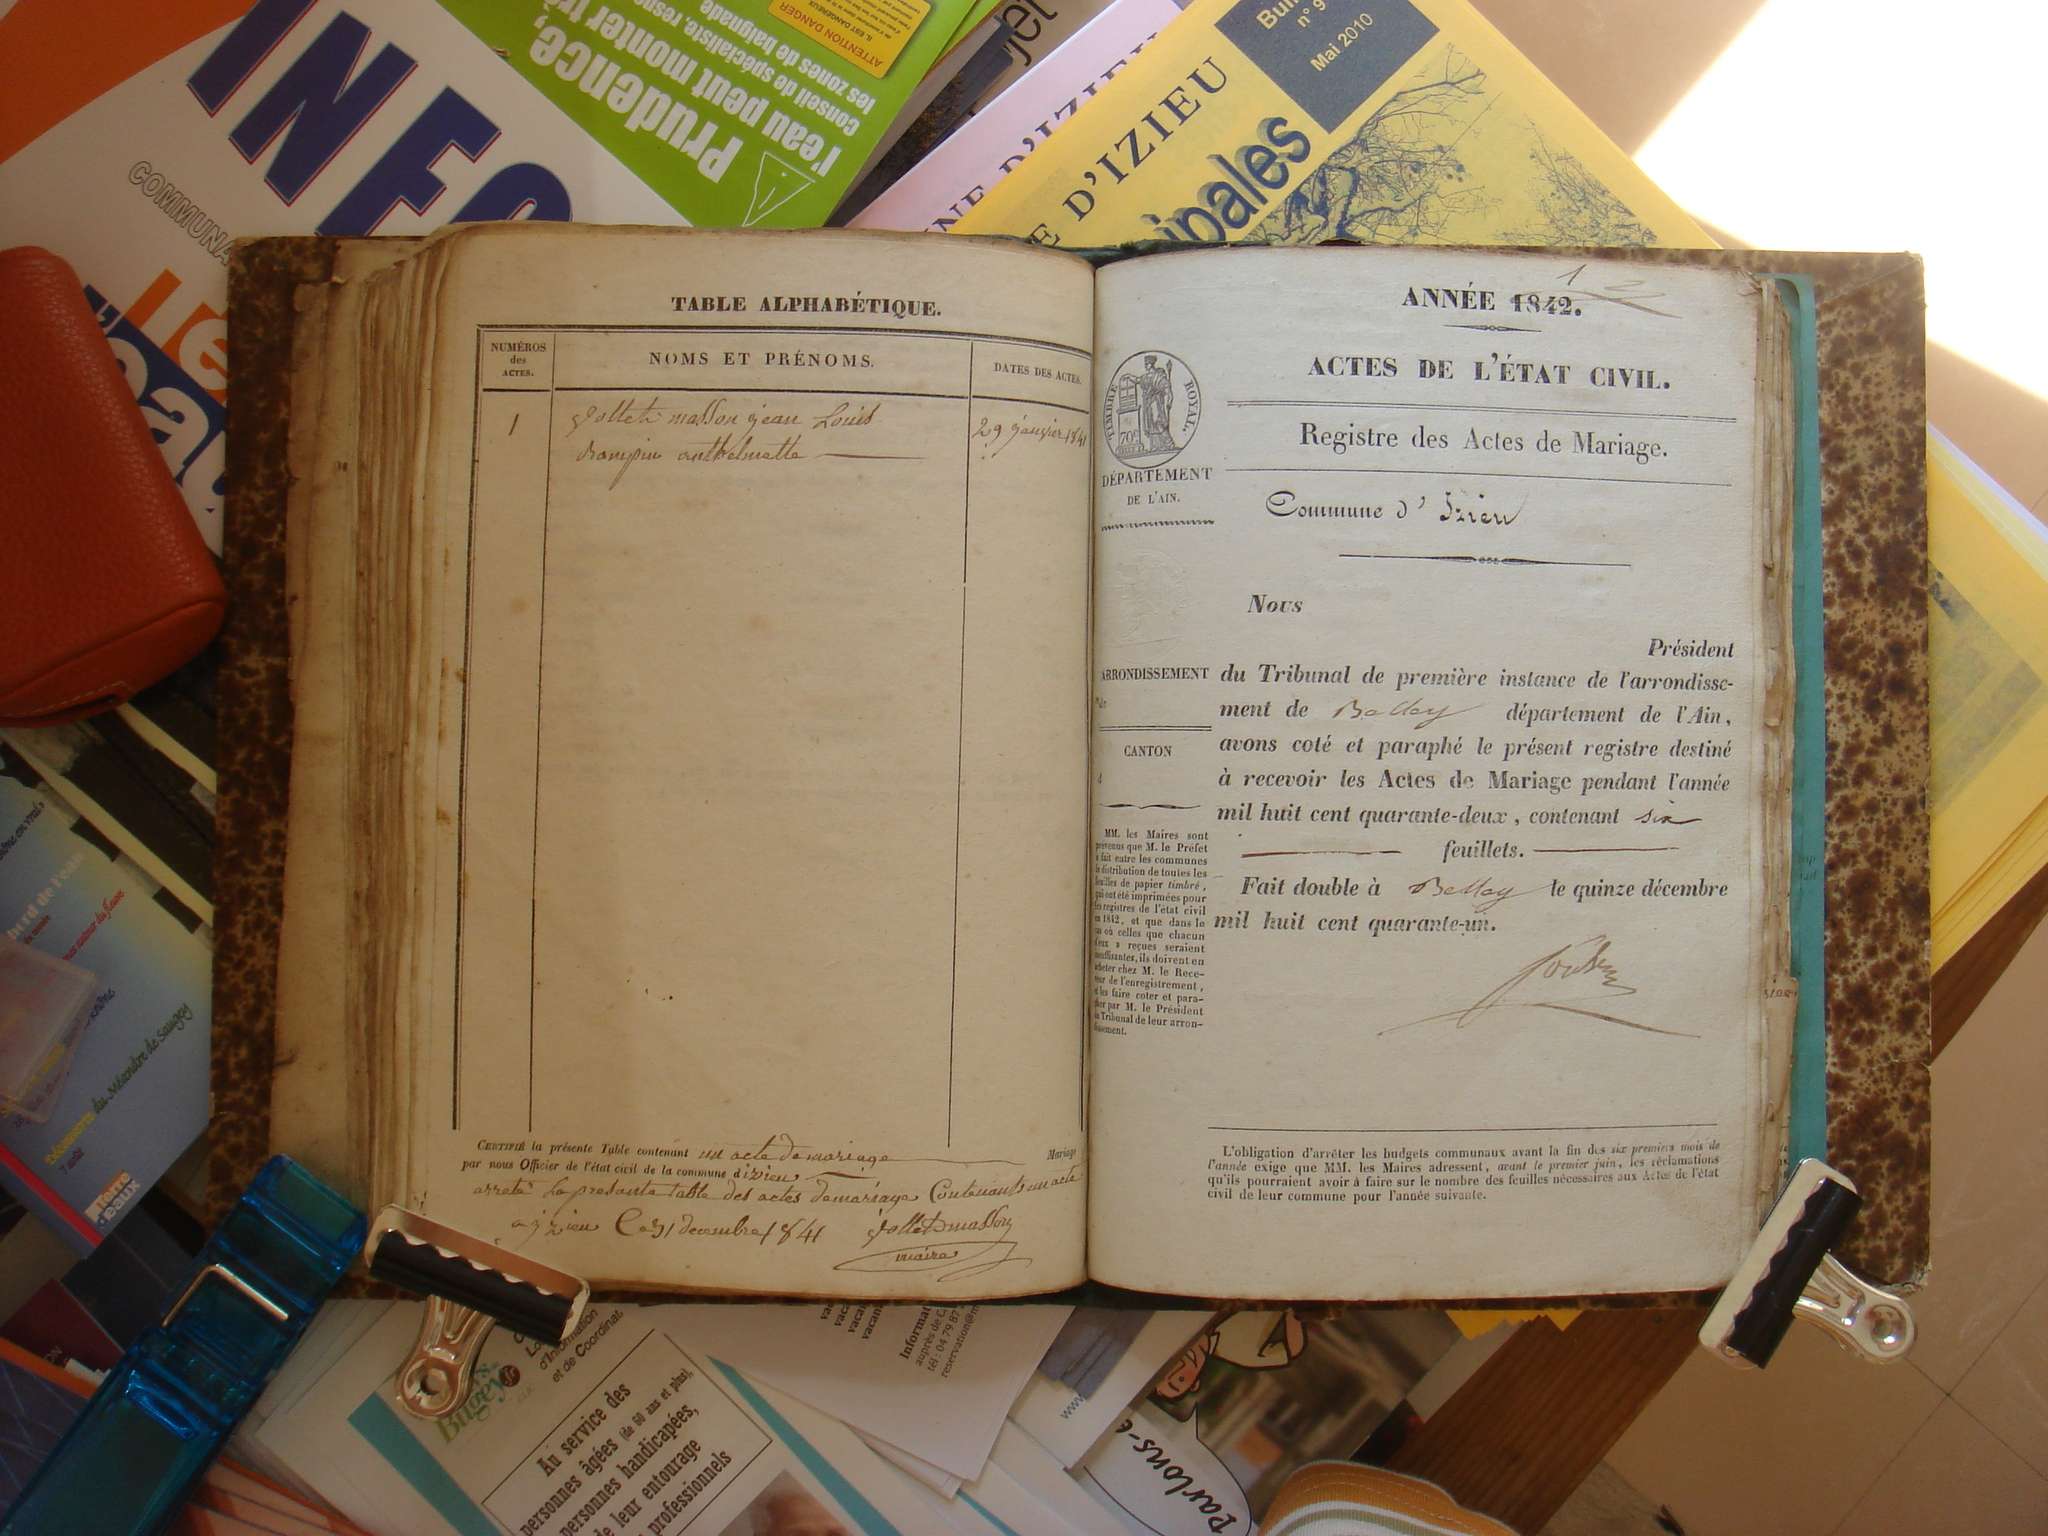 INFO
COMMUNA
Prudence,
l'eau peut monter trè
conseil de spécialiste, respe
les zones de baignade
ATTENTION DANGER
IL EST DANGEREUX
jet
NE D'IZIEU
E D'IZIEU
ipales
Bull
n° 9
Mai 2010
TABLE ALPHABÉTIQUE.
NUMÉROS
des
ACTES.
NOMS ET PRÉNOMS.
DATES DES ACTES.
1
Jollet masson jean Louis
29 janvier 1841
anthelmette
CERTIFIÉ la présente Table contenant un acte de mariage Mariage
par nous Officier de l'état civil de la commune d'izieu
arreté la presente table des actes de mariage Contenant un acte
a izieu le 31 decembre 1841 Jolletmasson
maire
1
ANNÉE 1842.
ACTES DE L'ÉTAT CIVIL.
TIMBRE ROYAL.
70c
Registre des Actes de Mariage.
DÉPARTEMENT
DE L'AIN.
Commune d'Izieu
Nous
Président
ARRONDISSEMENT
du Tribunal de première instance de l'arrondisse-
ment de Belley département de l'Ain,
CANTON
avons coté et paraphé le présent registre destiné
à recevoir les Actes de Mariage pendant l'année
mil huit cent quarante-deux, contenant six
feuillets.
Fait double à Belley le quinze décembre
mil huit cent quarante-un.
MM. les Maires sont
prévenus que M. le Préfet
a fait entre les communes
la distribution de toutes les
feuilles de papier timbré,
qui ont été imprimées pour
les registres de l'état civil
en 1842, et que dans le
cas où celles que chacun
d'eux a reçues seraient
insuffisantes, ils doivent en
acheter chez M. le Rece-
veur de l'enregistrement,
et les faire coter et para-
pher par M. le Président
du Tribunal de leur arron-
dissement.
L'obligation d'arrêter les budgets communaux avant la fin des six premiers mois de
l'année exige que MM. les Maires adressent, avant le premier juin, les réclamations
qu'ils pourraient avoir à faire sur le nombre des feuilles nécessaires aux Actes de l'état
civil de leur commune pour l'année suivante.
bord de l'eau
Découverte du Méandre de Saugey
7 août
Terre
d'eaux
Bugey
d'Information
et de Coordinat
Au service des
personnes âgées (de 60 ans et plus),
personnes handicapées,
de leur entourage
professionnels
Informat
auprès de
tél : 04 79 87
reservation@m
www.
Parlons-e